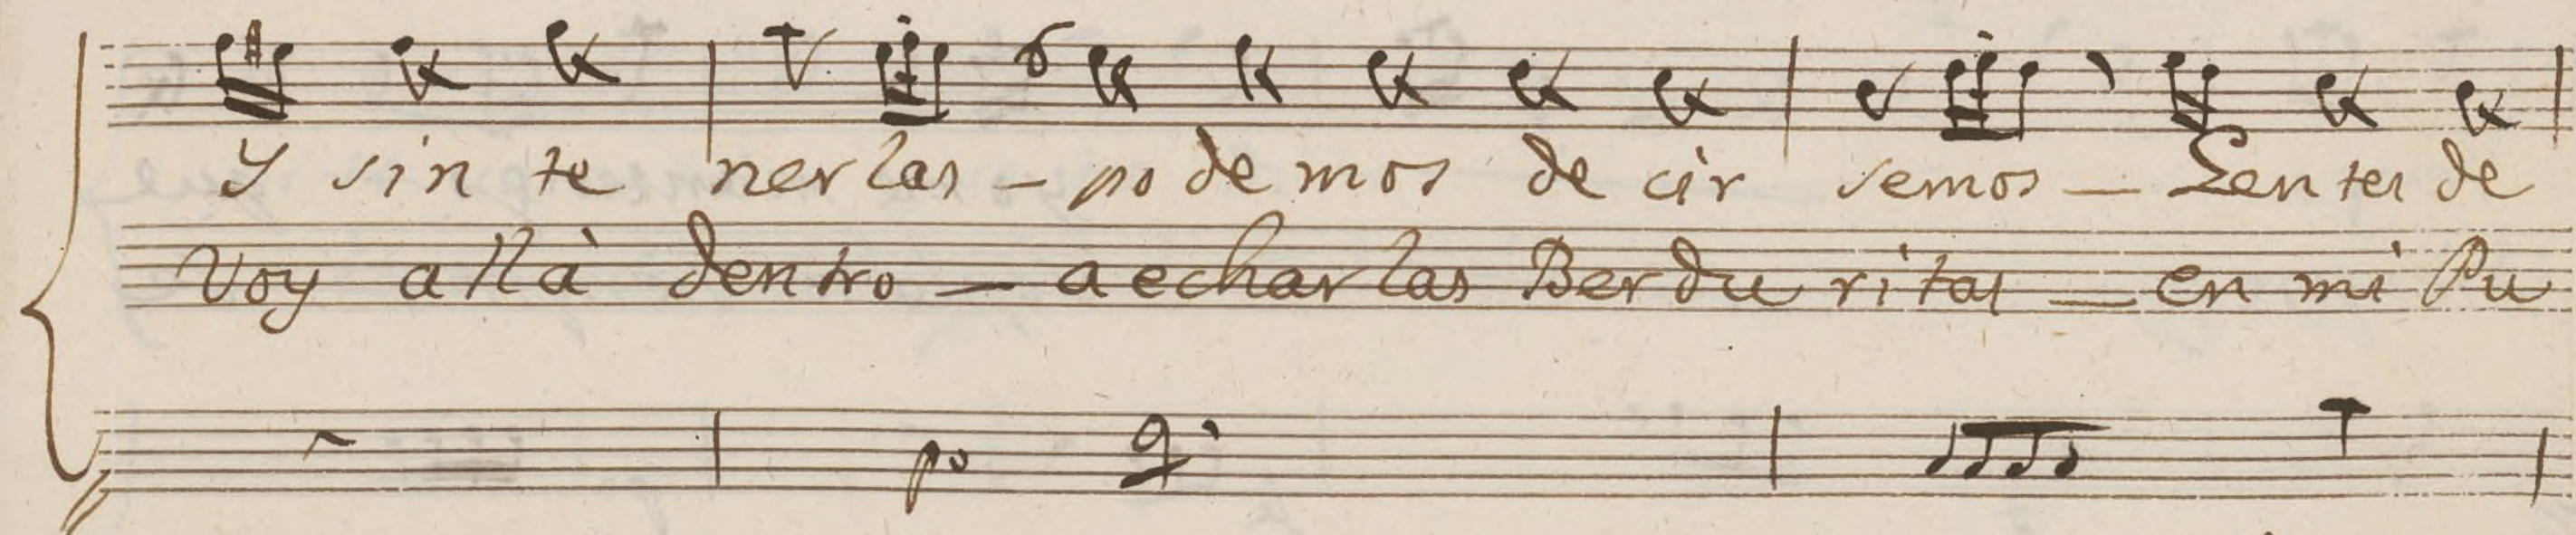 Y sin te ner las - po de mos de cir vemos - Zen tes de
Voy a llà dentro - a echar las Ber du ri tas - en mi Pu
po